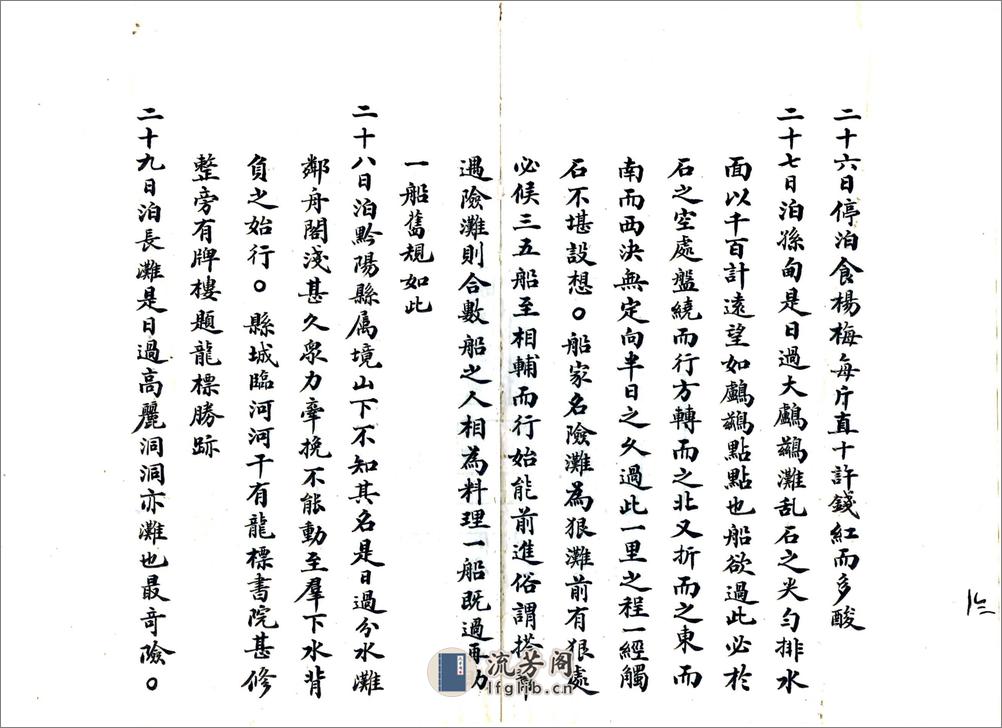 二十六日停泊食楊梅每斤直十許錢紅而多酸
二十七日泊孫甸是日過大鸕鷀灘乱石之尖勻排水
面以千百計遠望如鸕鷀點點也船欲過此必於
石之空處盤繞而行方轉而之北又折而之東而
南而西決無定向半日之久過此一里之程一經觸
石不堪設想〇船家名險灘為狠灘前有狠處
必候三五船至相輔而行始能前進俗謂搭
過險灘則合數船之人相為料理一船既過再力
一船舊規如此
二十八日泊黔陽縣属境山下不知其名是日過分水灘
鄰舟閣淺甚久眾力牽挽不能動至羣下水背
負之始行〇縣城臨河河干有龍標書院甚修
整旁有牌樓題龍標勝跡
二十九日泊長灘是日過高麗洞洞亦灘也最奇險〇
流芳阁
lfglib.cn